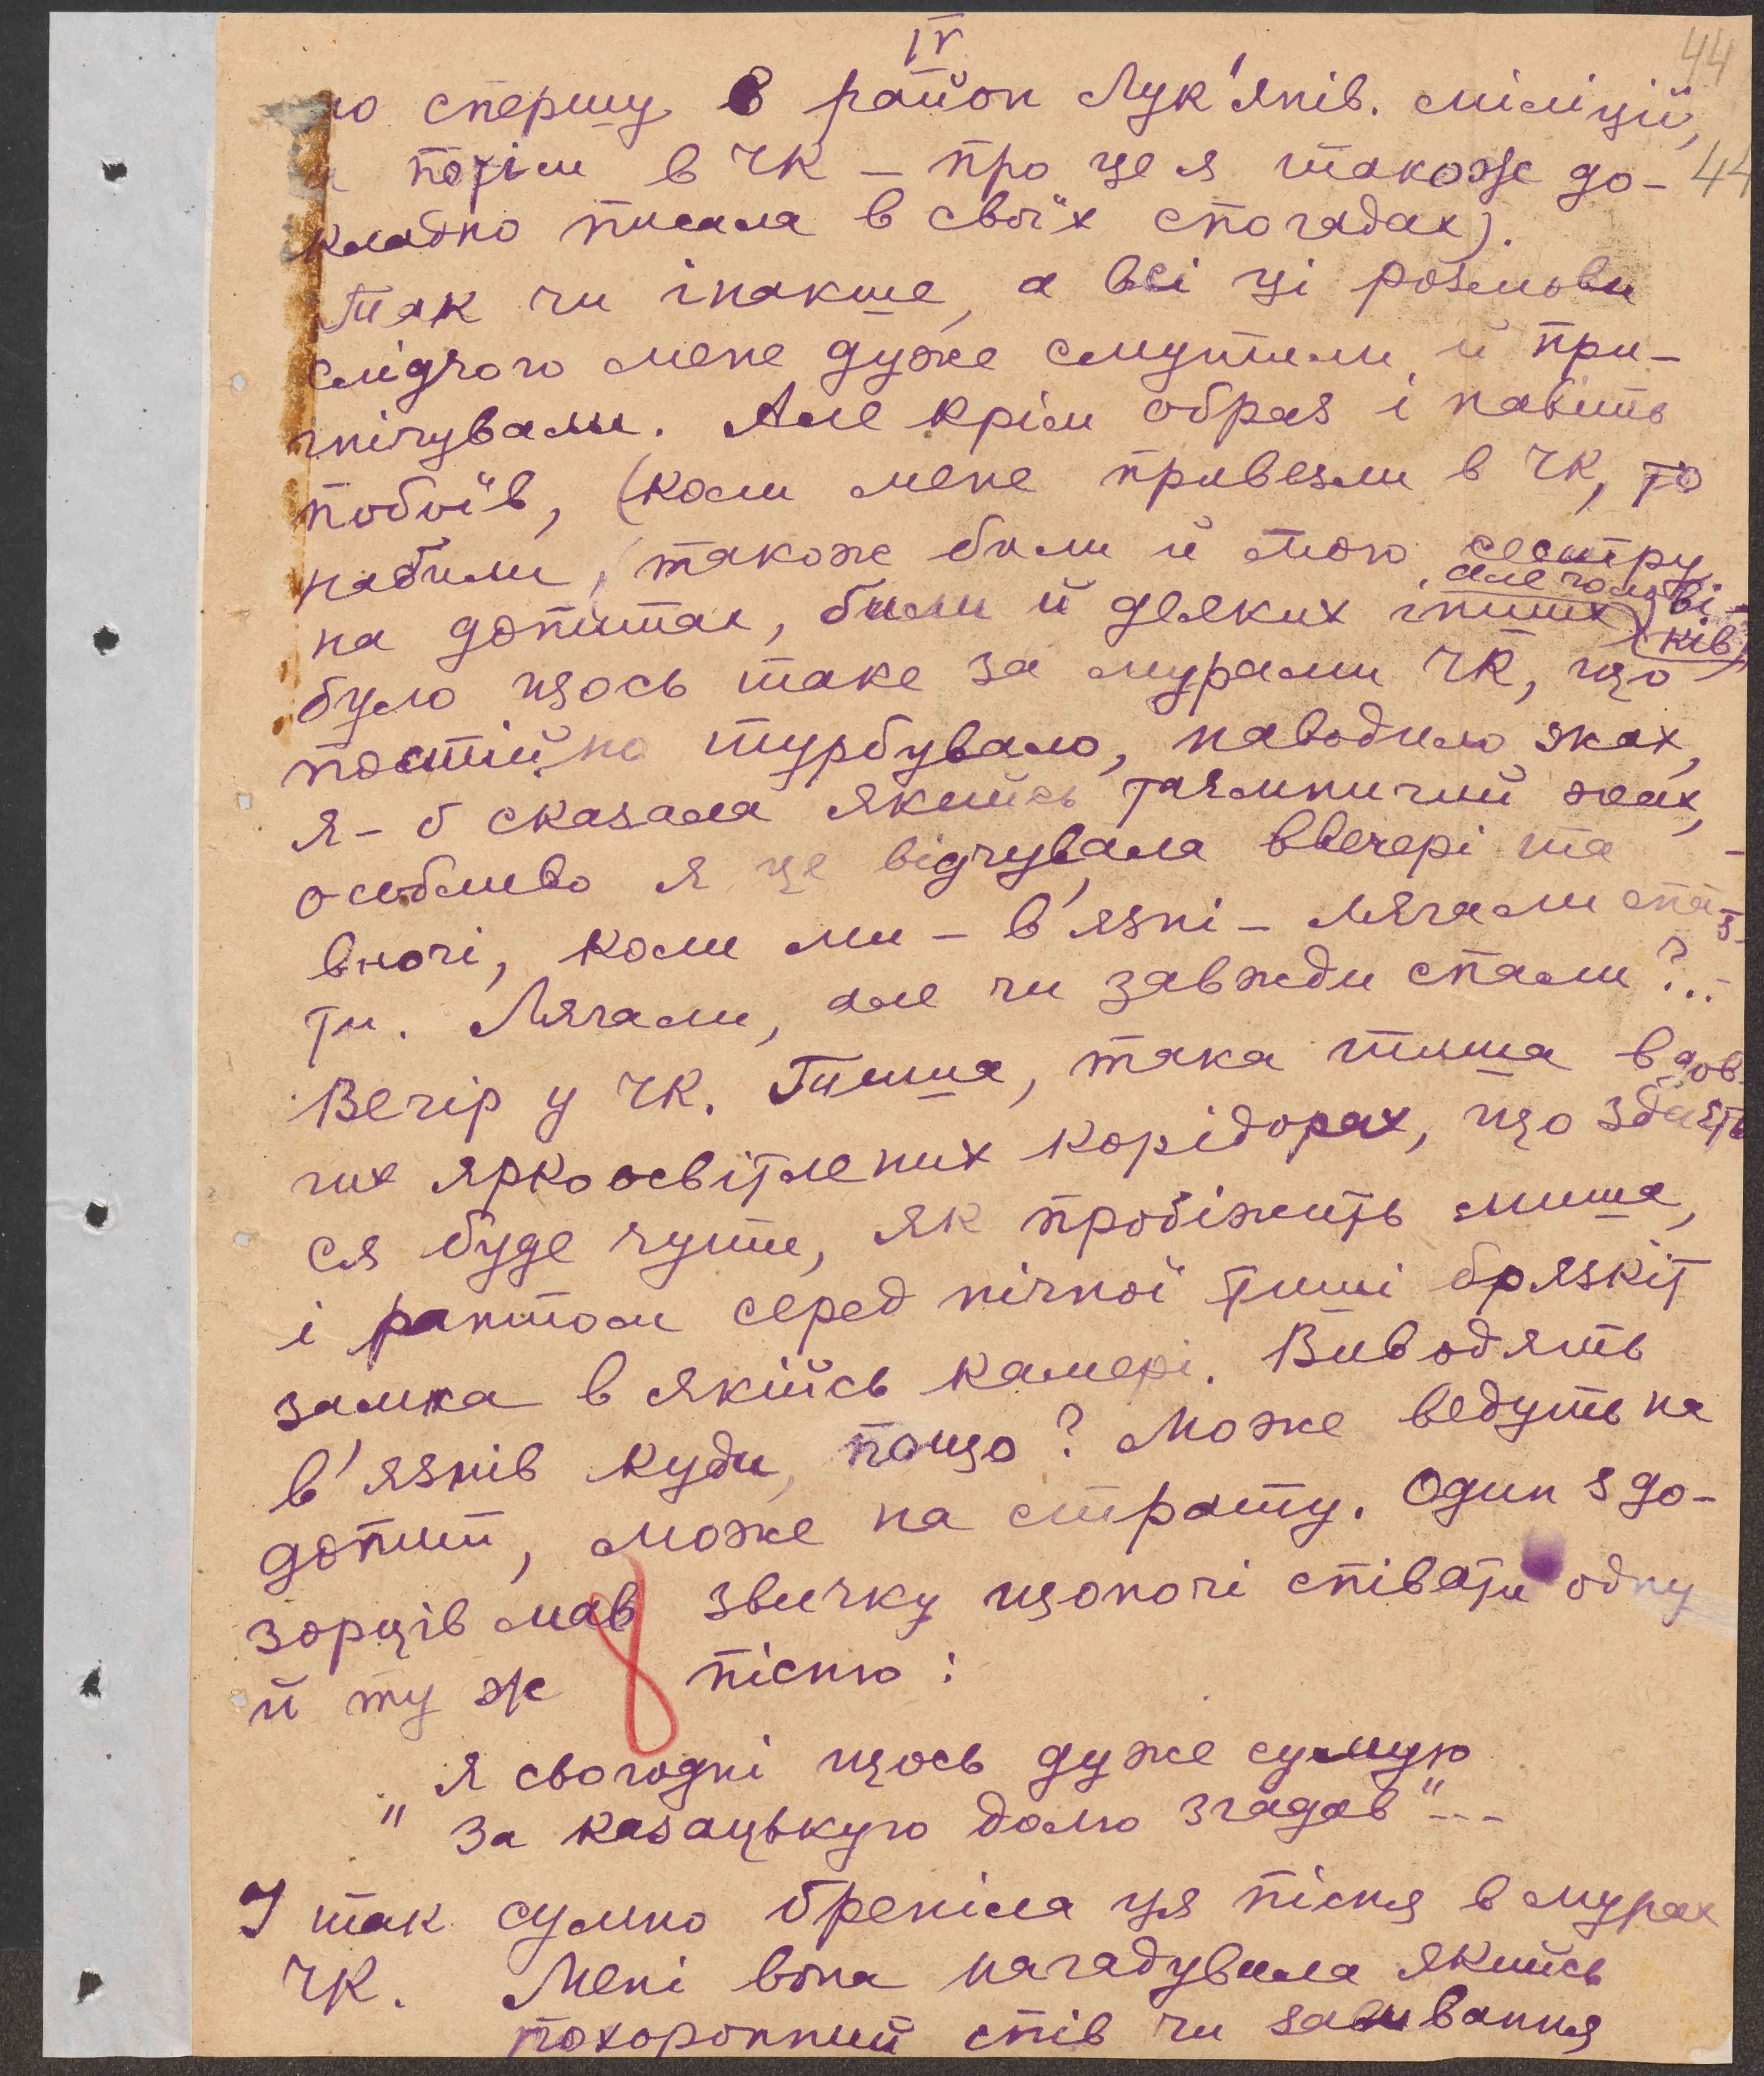 IV
44
44
ю спершу в район Лук'янів. міліції,
а потім в ЧК – про це я також до-
кладно писала в своїх спогадах).
Так чи інакше, а всі ці розмови
слідчого мене дуже смутили й при-
гнічували. Але крім образ і навіть
побоїв, (коли мене привезли в ЧК, то
набили, також били й мою сестру
на допитах, били й деяких інших, але чолові-
ків)
було щось таке за мурами ЧК, що
постійно турбувало, наводило жах,
я-б сказала якийсь таямничий жах,
особливо я це відчувала ввечері та
вночі, коли ми – в'язні – лягали спа-
ти. Лягали, але чи завжди спали?..
Вечір у ЧК. Тиша, така тиша в дов-
гих яркоосвітлених корідорах, що здаєть
ся буде чути, як пробіжить миша,
і раптом серед нічної тиші брязкіт
замка в якійсь камері. Виводять
в'язнів куди, пощо? Може ведуть на
допит, може на страту. Один з до-
зорців мав звичку щоночі співати одну
й ту ж пісню:
„ Я сьогодні щось дуже сумую
" За казацькую долю згадав"...
І так сумно бреніла ця пісня в мурах
ЧК. Мені вона нагадувала якийсь
похоронний спів чи завивання